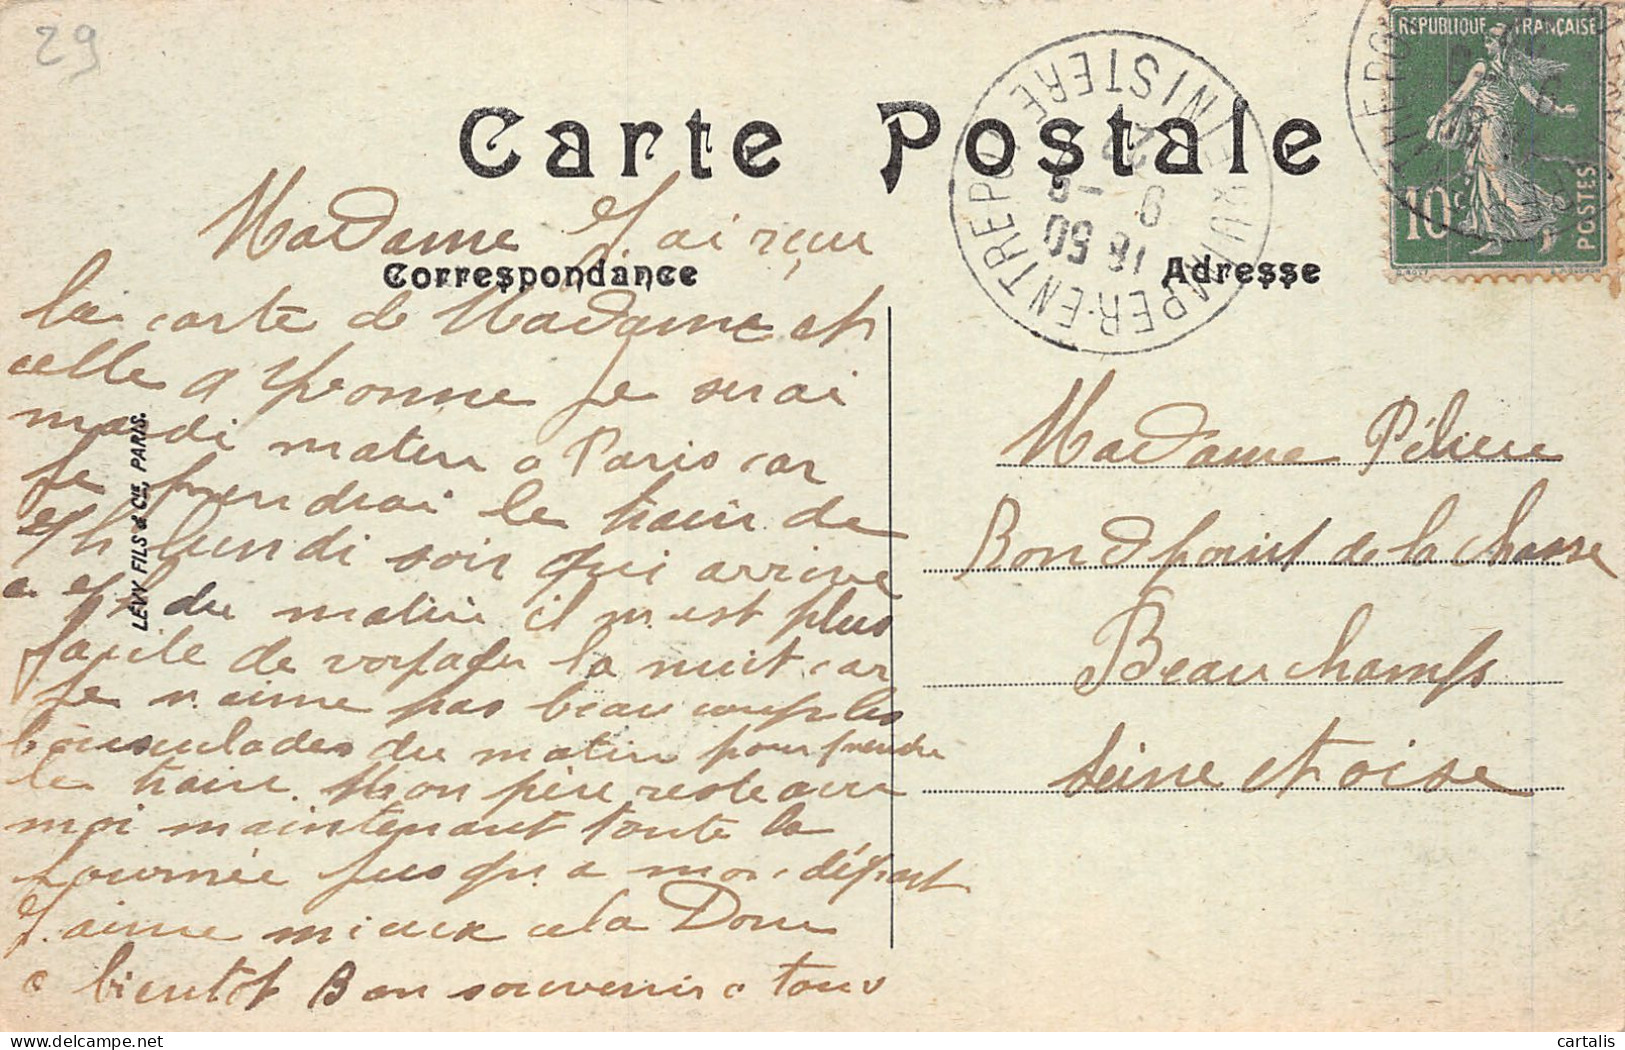 29
Carte Postale
Correspondance
Adresse
REPUBLIQUE FRANÇAISE
10c
POSTES
QUIMPER-ENTREPOT
FINISTERE
18 50
Madame J'ai reçu
la carte de Madame et
celle d Yvonne je serai
mardi matin a Paris car
je prendrai le train de
lundi soir qui arrive
a du matin il m est plus
facile de voyager la nuit car
je n aime pas beaucoup les
bousculades du matin pour prendre
le train. Mon père reste avec
moi maintenant toute la
journée jusqu a mon départ
J. aime mieux cela Donc
a bientôt Bon souvenir a tous
LEVY FILS & Cie, PARIS.
Madame Péliere
Rond point de la chasse
Beauchamps
Seine et oise
cartalis